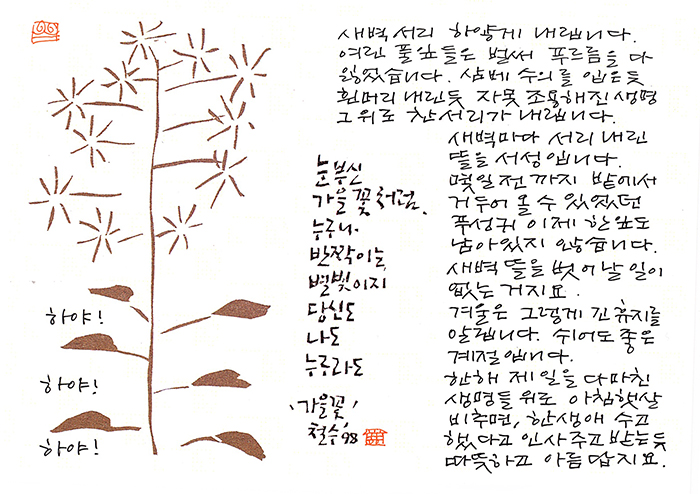 새벽 서리 하얗게 내립니다.
여린 풀잎들은 벌써 푸르름을 다
잃었습니다. 삼베 수의를 입은듯
흰머리 내린듯 자못 조용해진 생명
그 위로 찬서리가 내립니다.
새벽마다 서리 내린
뜰을 서성입니다.
몇일 전까지 밭에서
거두어 올 수 있었던
푸성귀 이제 한 잎도
남아있지 않습니다.
새벽 뜰을 벗어날 일이
없는 거지요.
겨울은 그렇게 긴 휴지를
알립니다. 쉬어도 좋은
계절입니다.
한해 제 일을 다 마친
생명들 위로 아침햇살
비추면, 한생애 수고
했다고 인사 주고 받는듯
따뜻하고 아름답지요.
눈부신
가을꽃처럼.
누구나.
반짝이는
별빛이지
당신도
나도
누구라도
'가을꽃'
철수 '98
하야!
하야!
하야!